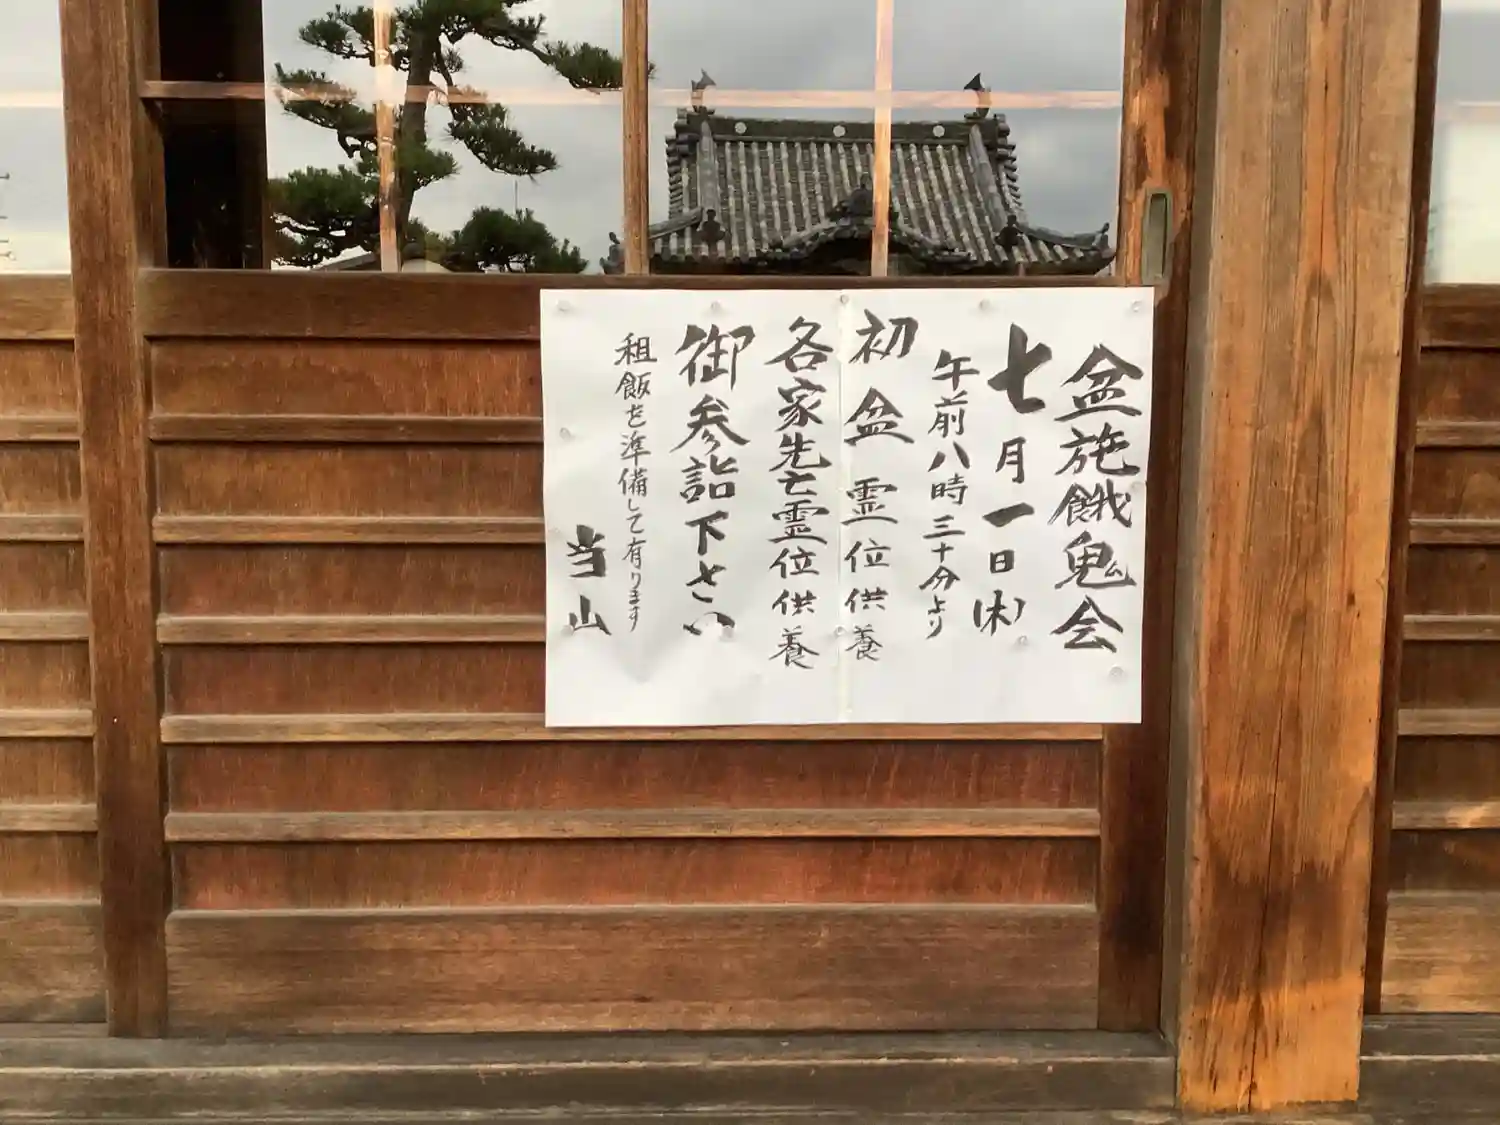 盆施餓鬼会
七月一日(木)
午前八時三十分より
初盆霊位供養
各家先亡霊位供養
御参詣下さい
粗飯を準備して有ります
当山